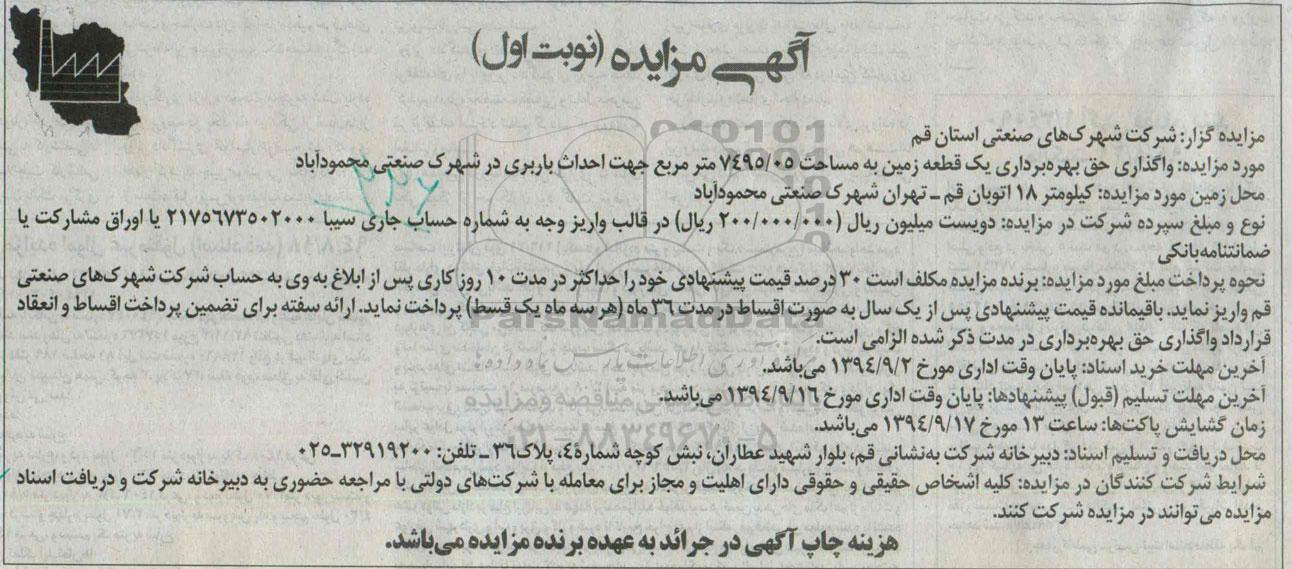 آگهی مزایده (نوبت اول)
مزایده گزار: شرکت شهرک‌های صنعتی استان قم
مورد مزایده: واگذاری حق بهره‌برداری یک قطعه زمین به مساحت ۷٤۹۵/۰۵ متر مربع جهت احداث باربری در شهرک صنعتی محمودآباد
محل زمین مورد مزایده: کیلومتر ۱۸ اتوبان قم ـ تهران شهرک صنعتی محمودآباد
نوع و مبلغ سپرده شرکت در مزایده: دویست میلیون ریال (۲۰۰/۰۰۰/۰۰۰ ریال) در قالب واریز وجه به شماره حساب جاری سیبا ۲۱۷۵۶۷۳۵۰۲۰۰۰ یا اوراق مشارکت یا
ضمانتنامه‌بانکی
نحوه پرداخت مبلغ مورد مزایده: برنده مزایده مکلف است ۳۰ درصد قیمت پیشنهادی خود را حداکثر در مدت ۱۰ روز کاری پس از ابلاغ به وی به حساب شرکت شهرک‌های صنعتی
قم واریز نماید. باقیمانده قیمت پیشنهادی پس از یک سال به صورت اقساط در مدت ۳۶ ماه (هر سه ماه یک قسط) پرداخت نماید. ارائه سفته برای تضمین پرداخت اقساط و انعقاد
قرارداد واگذاری حق بهره‌برداری در مدت ذکر شده الزامی است.
آخرین مهلت خرید اسناد: پایان وقت اداری مورخ ۱۳۹٤/۹/۲ می‌باشد.
آخرین مهلت تسلیم (قبول) پیشنهادها: پایان وقت اداری مورخ ۱۳۹٤/۹/۱۶ می‌باشد.
زمان گشایش پاکت‌ها: ساعت ۱۳ مورخ ۱۳۹٤/۹/۱۷ می‌باشد.
محل دریافت و تسلیم اسناد: دبیرخانه شرکت به‌نشانی قم، بلوار شهید عطاران، نبش کوچه شماره٤، پلاک۳۶ ـ تلفن: ۳۲۹۱۹۲۰۰ـ۰۲۵
شرایط شرکت کنندگان در مزایده: کلیه اشخاص حقیقی و حقوقی دارای اهلیت و مجاز برای معامله با شرکت‌های دولتی با مراجعه حضوری به دبیرخانه شرکت و دریافت اسناد
مزایده می‌توانند در مزایده شرکت کنند.
هزینه چاپ آگهی در جرائد به عهده برنده مزایده می‌باشد.
ParsNamadData
۰۲۱-۸۸۳۴۹۶۷۰-۵